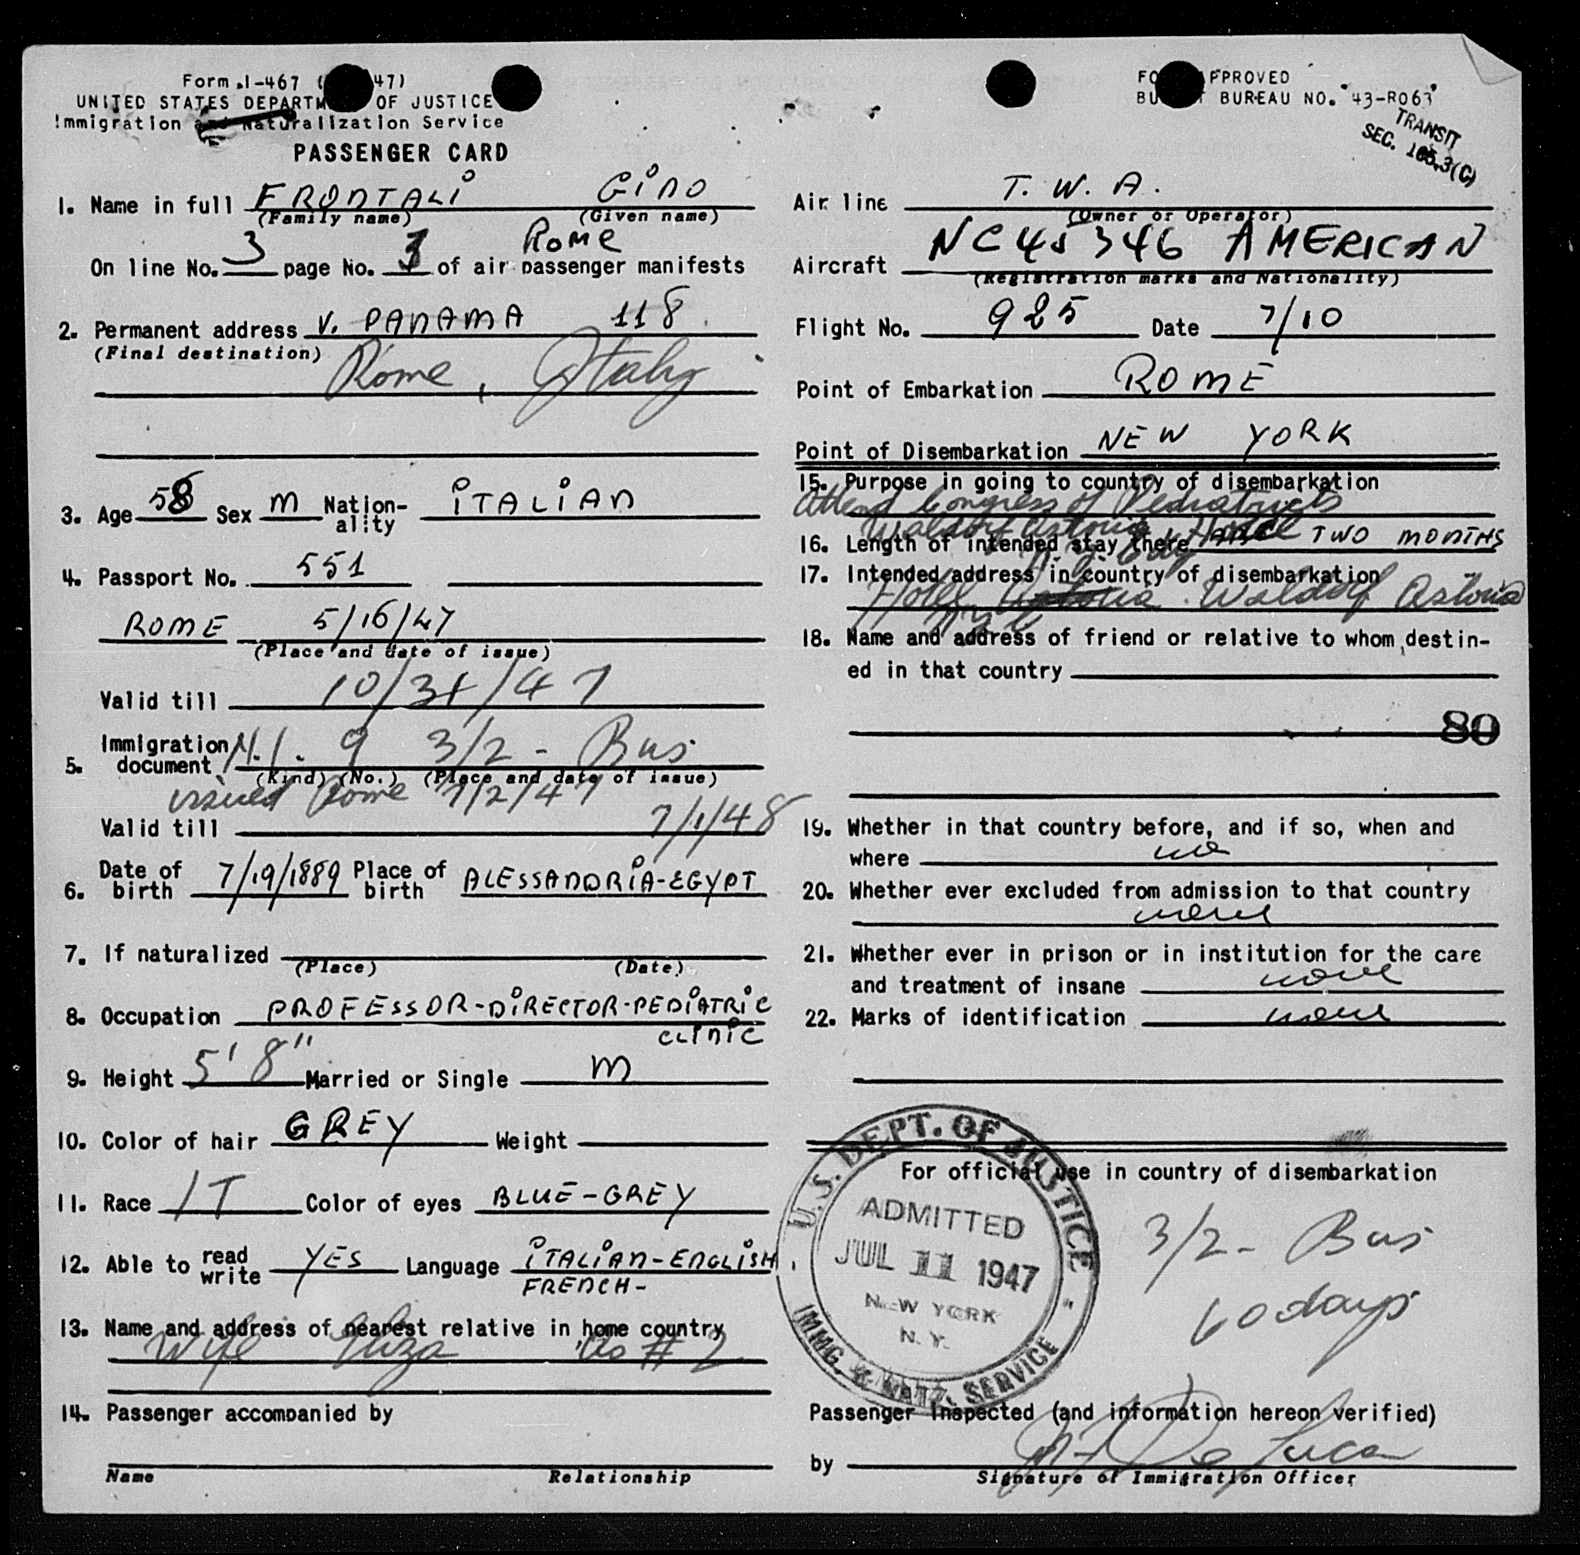 Form I-467 ( 47)
UNITED STATES DEPARTM OF JUSTICE
Immigration and Naturalization Service
PASSENGER CARD
1. Name in full FRONTALI GINO
(Family name) (Given name)
Rome
On line No. 3 page No. 1 of air passenger manifests
2. Permanent address V. PANAMA 118
(Final destination)
Rome, Italy
3. Age 58 Sex M Nation-ality ITALIAN
4. Passport No. 551
ROME 5/16/47
(Place and date of issue)
Valid till 10/31/47
5. Immigration document N.I. 9 3/2 - Bus
(Kind) (No.) (Place and date of issue)
issued Rome 7/2/47
Valid till 7/1/48
6. Date of birth 7/19/1889 Place of birth ALESSANDRIA-EGYPT
7. If naturalized
(Place) (Date)
8. Occupation PROFESSOR-DIRECTOR-PEDIATRIC
CLINIC
9. Height 5' 8" Married or Single M
10. Color of hair GREY Weight
11. Race IT Color of eyes BLUE-GREY
12. Able to read write YES Language ITALIAN-ENGLISH
FRENCH-
13. Name and address of nearest relative in home country
Wife Eliza as # 2
14. Passenger accompanied by
Name Relationship
FO APPROVED
BU T BUREAU NO. 43-R063
TRANSIT
SEC. 165.3(C)
Air line T. W. A.
(Owner or Operator)
Aircraft NC45346 AMERICAN
(Registration marks and Nationality)
Flight No. 925 Date 7/10
Point of Embarkation ROME
Point of Disembarkation NEW YORK
15. Purpose in going to country of disembarkation
Attend Congress of Pediatrics
Waldorf Astoria Hotel
16. Length of intended stay there TWO MONTHS
N.Y. City
17. Intended address in country of disembarkation
Hotel Astoria Waldorf Astoria
NYC
18. Name and address of friend or relative to whom destin-
ed in that country
80
19. Whether in that country before, and if so, when and
where no
20. Whether ever excluded from admission to that country
none
21. Whether ever in prison or in institution for the care
and treatment of insane none
22. Marks of identification none
For official use in country of disembarkation
U.S. DEPT. OF JUSTICE
ADMITTED
JUL 11 1947
NEW YORK
N. Y.
IMMG. & NATZ. SERVICE
3/2 - Bus
60 days
Passenger Inspected (and information hereon verified)
by De Luca
Signature of Immigration Officer